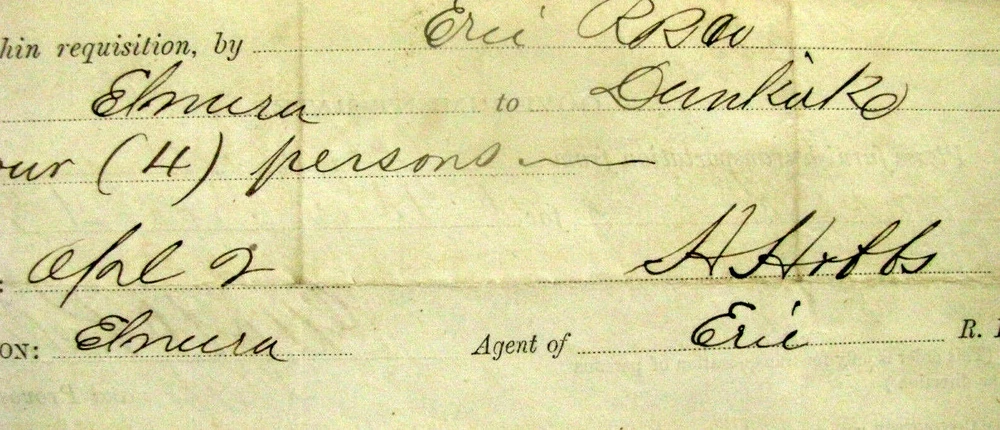 hin requisition, by Erie R Road
Elmira to Dunkirk
our (4) persons
: Apl 2 H Hobbs
ON: Elmira Agent of Erie R.